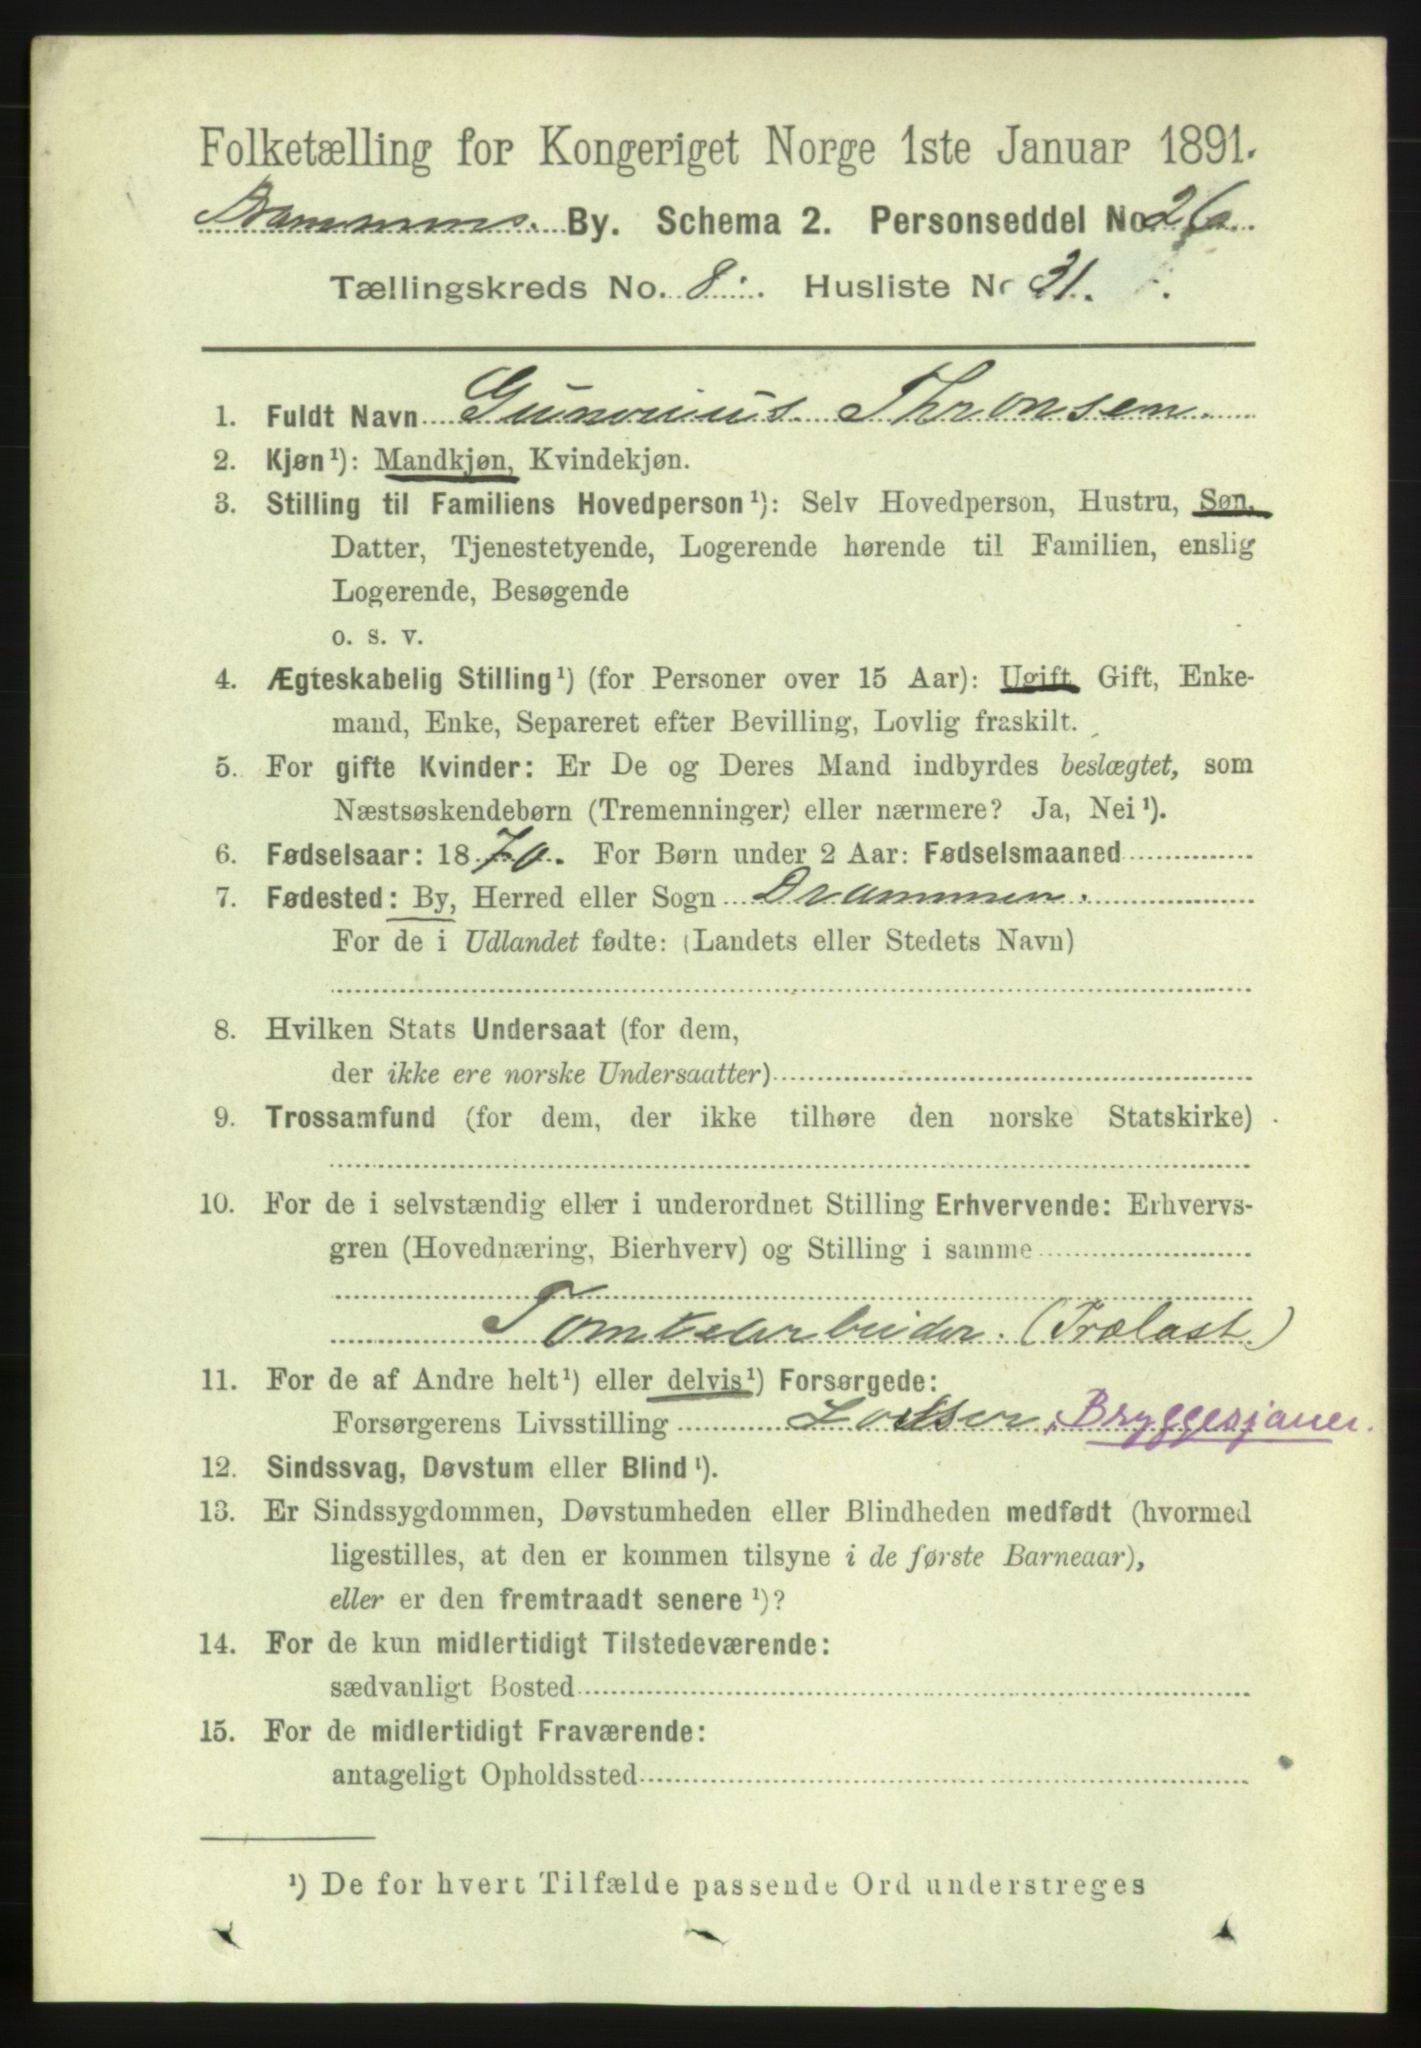 Folketælling for Kongeriget Norge 1ste Januar 1891.
Drammens. By. Schema 2. Personseddel No 26.
Tællingskreds No. 8. Husliste No 31.
1. Fuldt Navn Gunerius Thronsen.
2. Kjøn¹): Mandkjøn, Kvindekjøn.
3. Stilling til Familiens Hovedperson¹): Selv Hovedperson, Hustru, Søn,
Datter, Tjenestetyende, Logerende hørende til Familien, enslig
Logerende, Besøgende
o. s. v.
4. Ægteskabelig Stilling¹) (for Personer over 15 Aar): Ugift, Gift, Enke-
mand, Enke, Separeret efter Bevilling, Lovlig fraskilt.
5. For gifte Kvinder: Er De og Deres Mand indbyrdes beslægtet, som
Næstsøskendebørn (Tremenninger) eller nærmere? Ja, Nei¹).
6. Fødselsaar: 1870. For Børn under 2 Aar: Fødselsmaaned
7. Fødested: By, Herred eller Sogn Drammen.
For de i Udlandet fødte: (Landets eller Stedets Navn)
8. Hvilken Stats Undersaat (for dem,
der ikke ere norske Undersaatter)
9. Trossamfund (for dem, der ikke tilhøre den norske Statskirke)
10. For de i selvstændig eller i underordnet Stilling Erhvervende: Erhvervs-
gren (Hovednæring, Bierhverv) og Stilling i samme
Tomtearbeider. (Trælast)
11. For de af Andre helt¹) eller delvis¹) Forsørgede:
Forsørgerens Livsstilling Losser, Bryggesjauer.
12. Sindssvag, Døvstum eller Blind¹).
13. Er Sindssygdommen, Døvstumheden eller Blindheden medfødt (hvormed
ligestilles, at den er kommen tilsyne i de første Barneaar),
eller er den fremtraadt senere¹)?
14. For de kun midlertidigt Tilstedeværende:
sædvanligt Bosted
15. For de midlertidigt Fraværende:
antageligt Opholdssted
¹) De for hvert Tilfælde passende Ord understreges